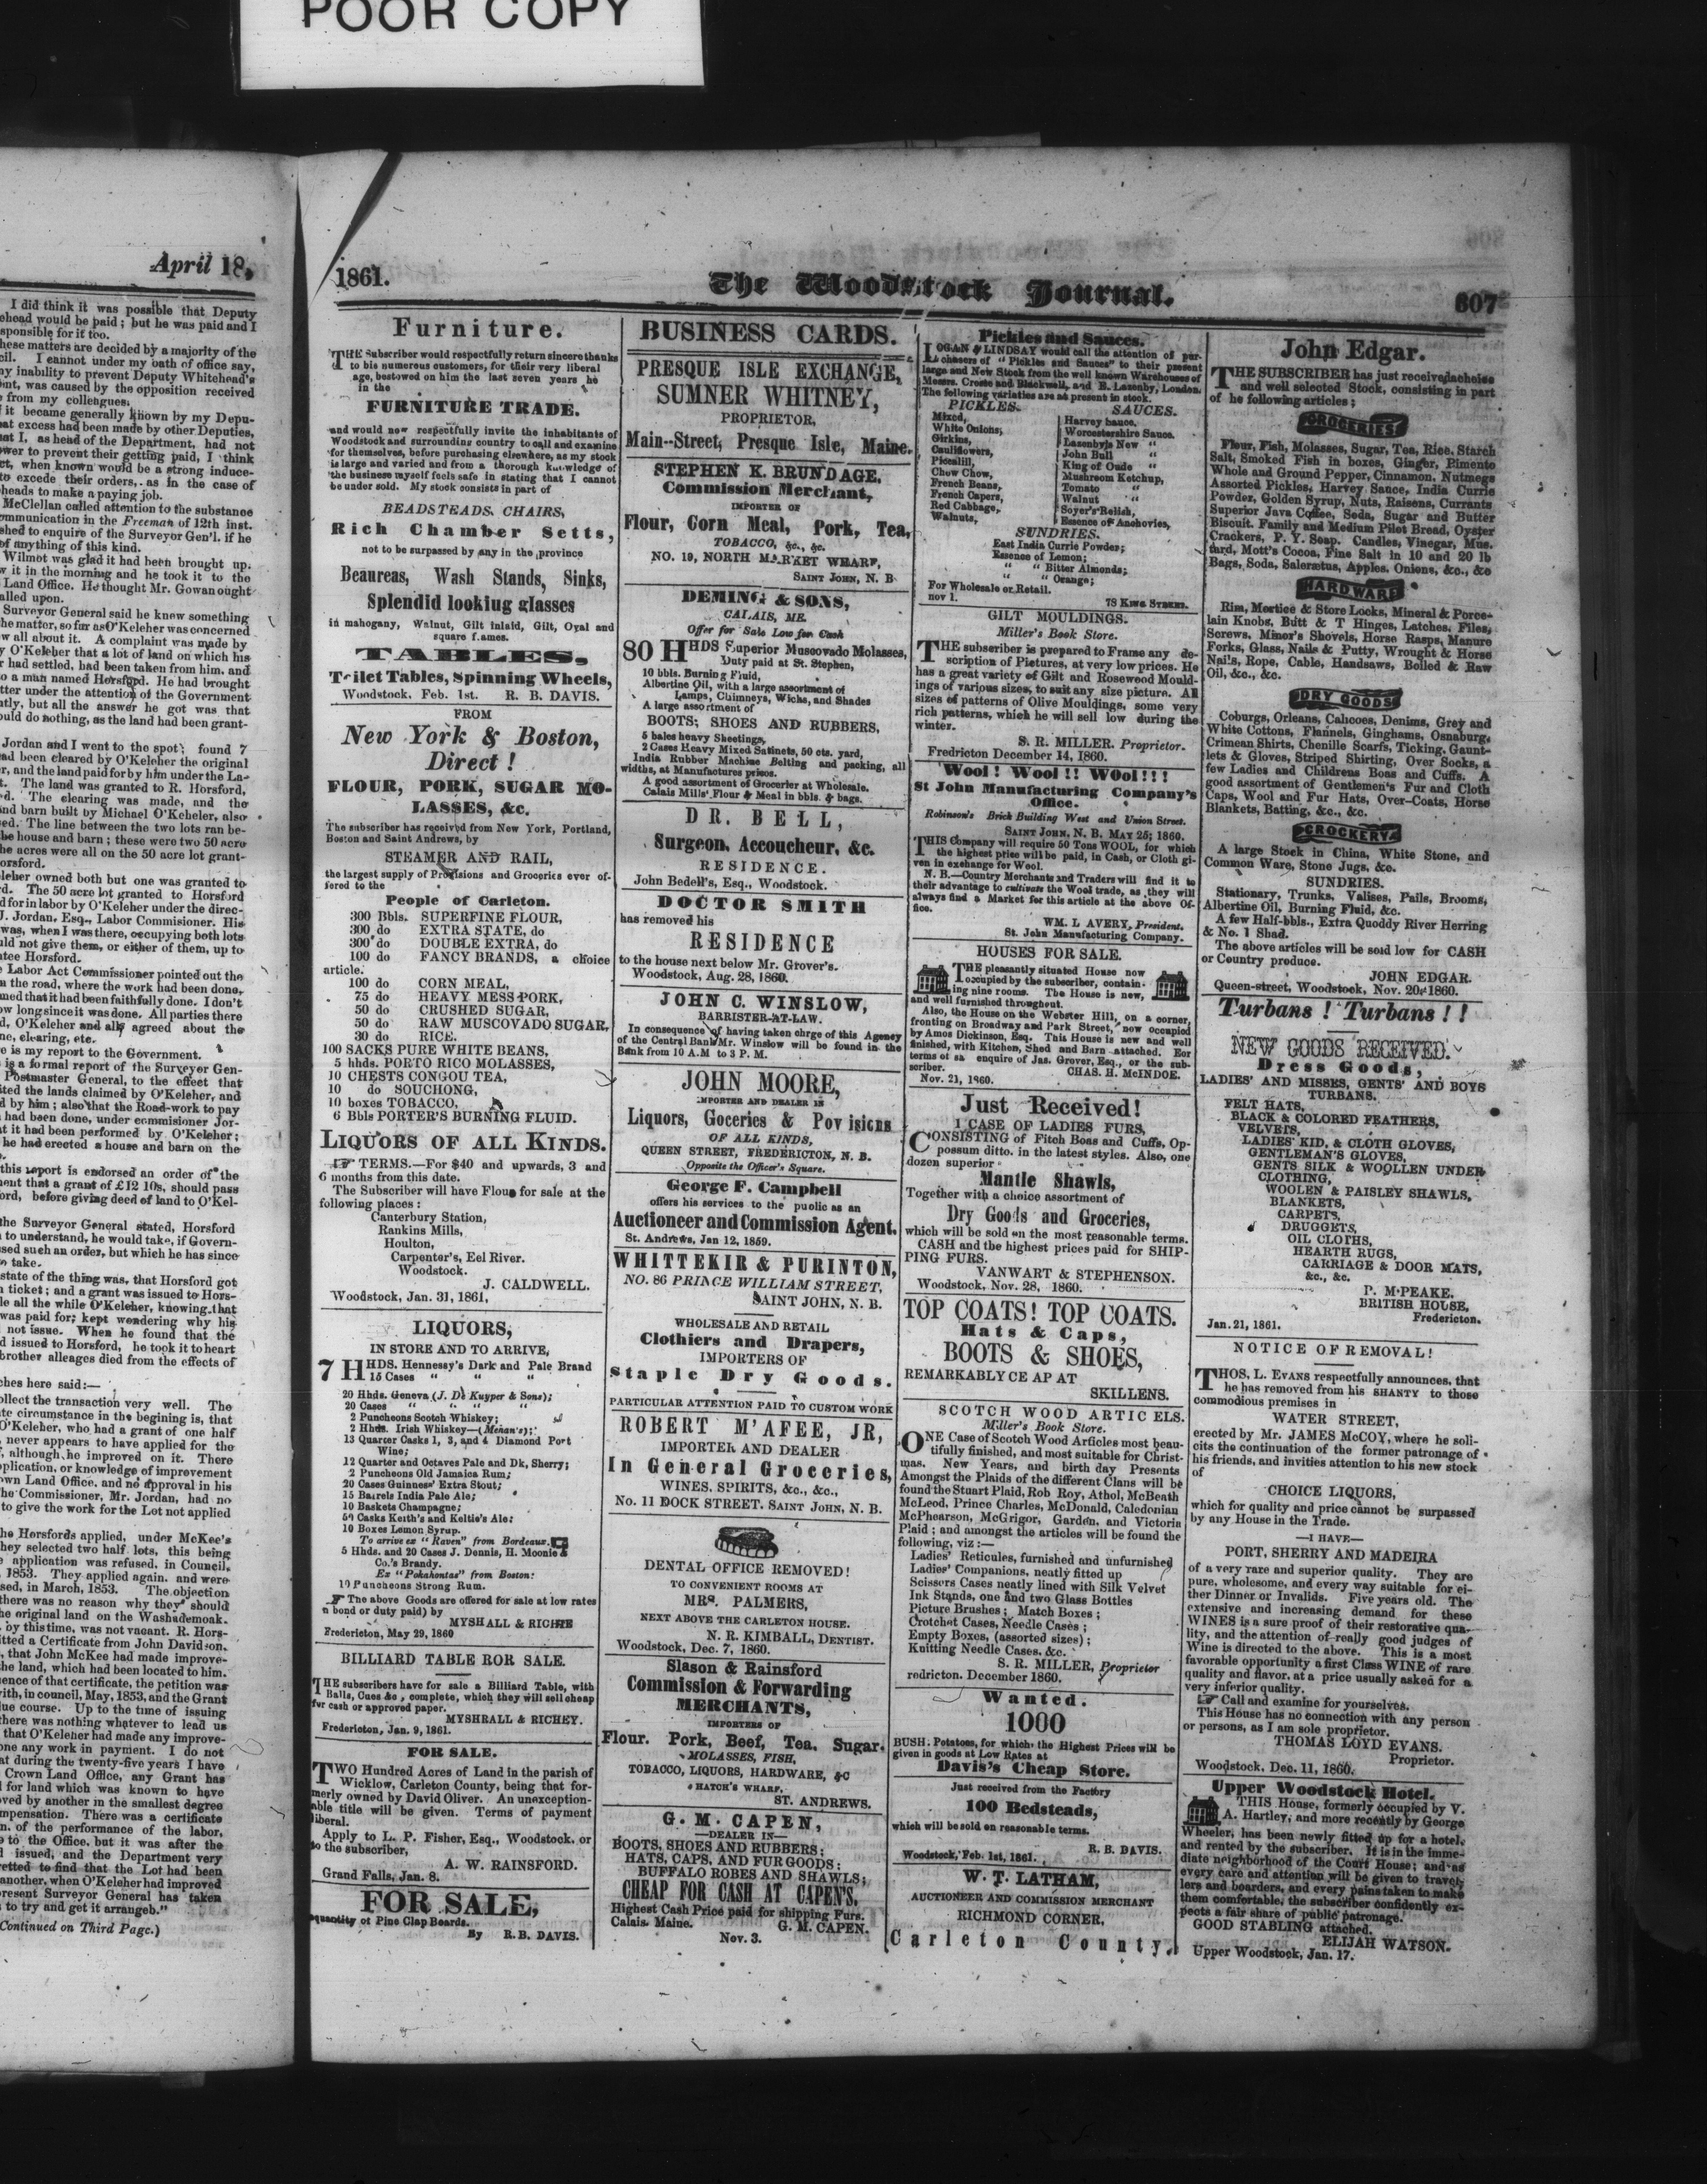 POOR COPY
April 18,
I did think it was possible that Deputy
would be paid; but he was paid and I
sponsible for it too.
these matters are decided by a majority of the
I cannot under my oath of office say,
my inability to prevent Deputy Whitehead's
was caused by the opposition received
from my colleagues.
it became generally known by my Depu-
excess had been made by other Deputies,
I, as head of the Department, had not
to prevent their getting paid, I think
when known would be a strong induce-
to excede their orders, as in the case of
heads to make a paying job.
McClellan called attention to the substance
communication in the Freeman of 12th inst.
to enquire of the Surveyor Gen'l. if he
of anything of this kind.
Wilmot was glad it had been brought up.
it in the morning and he took it to the
Land Office. He thought Mr. Gowan ought
called upon.
Surveyor General said he knew something
the matter, so far as O'Keleher was concerned
all about it. A complaint was made by
O'Keleher that a lot of land on which his
had settled, had been taken from him, and
a man named Horsford. He had brought
under the attention of the Government
but all the answer he got was that
could do nothing, as the land had been grant-
Jordan and I went to the spot; found 7
had been cleared by O'Keleher the original
and the land paid for by him under the La-
The land was granted to R. Horsford,
The clearing was made, and the
and barn built by Michael O'Keheler, also
The line between the two lots ran be-
the house and barn; these were two 50 acre
acres were all on the 50 acre lot grant-
Horsford.
owned both but one was granted to
The 50 acre lot granted to Horsford
for in labor by O'Keleher under the direc-
J. Jordan, Esq., Labor Commisioner. His
was, when I was there, occupying both lots
not give them, or either of them, up to
Horsford.
Labor Act Commissioner pointed out the
the road, where the work had been done,
that it had been faithfully done. I don't
long since it was done. All parties there
O'Keleher and all agreed about the
clearing, etc.
is my report to the Government.
is a formal report of the Surveyer Gen-
Postmaster General, to the effect that
the lands claimed by O'Keleher, and
by him; also that the Road-work to pay
had been done, under commisioner Jor-
it had been performed by O'Keleher;
he had erected a house and barn on the
this report is endorsed an order of the
that a grant of £12 10s, should pass
before giving deed of land to O'Kel-
the Surveyor General stated, Horsford
to understand, he would take, if Govern-
such an order, but which he has since
take.
state of the thing was, that Horsford got
ticket; and a grant was issued to Hors-
all the while O'Keleher, knowing that
was paid for; kept wondering why his
not issue. When he found that the
issued to Horsford, he took it to heart
brother alleages died from the effects of
here said:—
the transaction very well. The
circumstance in the begining is, that
O'Keleher, who had a grant of one half
never appears to have applied for the
although he improved on it. There
or knowledge of improvement
Land Office, and no approval in his
Commissioner, Mr. Jordan, had no
to give the work for the Lot not applied
Horsfords applied, under McKee's
they selected two half lots, this being
application was refused, in Council,
1853. They applied again, and were
in March, 1853. The objection
there was no reason why they should
original land on the Washademoak.
by this time, was not vacant. R. Hors-
a Certificate from John Davidson,
that John McKee had made improve-
the land, which had been located to him.
of that certificate, the petition was
in council, May, 1853, and the Grant
course. Up to the time of issuing
there was nothing whatever to lead us
that O'Keleher had made any improve-
any work in payment. I do not
during the twenty-five years I have
Crown Land Office, any Grant has
for land which was known to have
by another in the smallest degree
There was a certificate
of the performance of the labor,
to the Office, but it was after the
issued, and the Department very
to find that the Lot had been
another, when O'Keleher had improved
present Surveyor General has taken
to try and get it arrangeb."
(Continued on Third Page.)
1861.
The Woodstock Journal.
607
Furniture.
THE Subscriber would respectfully return sincere thanks
to his numerous customers, for their very liberal
age, bestowed on him the last seven years he
in the
FURNITURE TRADE.
and would now respectfully invite the inhabitants of
Woodstock and surrounding country to call and examine
for themselves, before purchasing elsewhere, as my stock
is large and varied and from a thorough knowledge of
the business myself feels safe in stating that I cannot
be under sold. My stock consists in part of
BEADSTEADS, CHAIRS,
Rich Chamber Setts,
not to be surpassed by any in the province
Beaureas, Wash Stands, Sinks,
Splendid lookiug glasses
in mahogany, Walnut, Gilt inlaid, Gilt, Oval and
square f.ames.
TABLES.
Toilet Tables, Spinning Wheels,
Woodstock, Feb. 1st. R. B. DAVIS.
FROM
New York & Boston,
Direct!
FLOUR, PORK, SUGAR MO-
LASSES, &c.
The subscriber has received from New York, Portland,
Boston and Saint Andrews, by
STEAMER AND RAIL,
the largest supply of Provisions and Groceries ever of-
fered to the
People of Carleton.
300 Bbls. SUPERFINE FLOUR,
300 do EXTRA STATE, do
300 do DOUBLE EXTRA, do
100 do FANCY BRANDS, a choice
article.
100 do CORN MEAL,
75 do HEAVY MESS PORK,
50 do CRUSHED SUGAR,
50 do RAW MUSCOVADO SUGAR,
30 do RICE.
100 SACKS PURE WHITE BEANS,
5 hhds. PORTO RICO MOLASSES,
10 CHESTS CONGOU TEA,
10 do SOUCHONG,
10 boxes TOBACCO,
6 Bbls PORTER'S BURNING FLUID.
LIQUORS OF ALL KINDS.
☞ TERMS.—For $40 and upwards, 3 and
6 months from this date.
The Subscriber will have Flour for sale at the
following places:
Canterbury Station,
Rankins Mills,
Houlton,
Carpenter's, Eel River.
Woodstock.
J. CALDWELL.
Woodstock, Jan. 31, 1861,
LIQUORS,
IN STORE AND TO ARRIVE,
7 HHDS. Hennessy's Dark and Pale Brand
15 Cases " " "
20 Hhds. Geneva (J. De Kuyper & Sons);
20 Cases " " " "
2 Puncheons Scotch Whiskey;
2 Hhds. Irish Whiskey—(Mehan's);
13 Quarter Casks 1, 3, and 4 Diamond Port
Wine;
12 Quarter and Octaves Pale and Dk, Sherry;
2 Puncheons Old Jamaica Rum;
20 Cases Guinness' Extra Stout;
15 Barrels India Pale Ale;
10 Baskets Champagne;
50 Casks Keith's and Keltie's Ale;
10 Boxes Lemon Syrup.
To arrive ex "Raven" from Bordeaux.
5 Hhds. and 20 Cases J. Dennis, H. Moonie &
Co.'s Brandy.
Ex "Pokahontas" from Boston:
10 Puncheons Strong Rum.
☞ The above Goods are offered for sale at low rates
n bond or duty paid) by
MYSHALL & RICHE
Fredericton, May 29, 1860
BILLIARD TABLE ROR SALE.
THE subscribers have for sale a Billiard Table, with
Balls, Cues &c, complete, which they will sell cheap
for cash or approved paper.
MYSHRALL & RICHEY.
Fredericton, Jan. 9, 1861.
FOR SALE.
TWO Hundred Acres of Land in the parish of
Wicklow, Carleton County, being that for-
merly owned by David Oliver. An unexception-
able title will be given. Terms of payment
liberal.
Apply to L. P. Fisher, Esq., Woodstock, or
to the subscriber,
A. W. RAINSFORD.
Grand Falls, Jan. 8.
FOR SALE,
quantity ot Pine Clap Boards.
By R.B. DAVIS.
BUSINESS CARDS.
PRESQUE ISLE EXCHANGE,
SUMNER WHITNEY,
PROPRIETOR,
Main--Street, Presque Isle, Maine.
STEPHEN K. BRUNDAGE,
Commission Merchant,
IMPORTER OF
Flour, Corn Meal, Pork, Tea,
TOBACCO, &c., &c.
NO. 19, NORTH MARKET WHARF,
SAINT JOHN, N. B.
DEMING & SONS,
CALAIS, ME.
Offer for Sale Low for Cash
80 HHDS Superior Muscovado Molasses,
Duty paid at St. Stephen,
10 bbls. Burning Fluid,
Albertine Oil, with a large assortment of
Lamps, Chimneys, Wicks, and Shades
A large assortment of
BOOTS, SHOES AND RUBBERS,
5 bales heavy Sheetings,
2 Cases Heavy Mixed Satinets, 50 cts. yard,
India Rubber Machine Belting and packing, all
widths, at Manufactures prices.
A good assortment of Grocerier at Wholesale.
Calais Mills' Flour & Meal in bbls. & bags.
DR. BELL,
Surgeon, Accoucheur, &c.
RESIDENCE.
John Bedell's, Esq., Woodstock.
DOCTOR SMITH
has removed his
RESIDENCE
to the house next below Mr. Grover's.
Woodstock, Aug. 28, 1860.
JOHN C. WINSLOW,
BARRISTER-AT-LAW.
In consequence of having taken chrge of this Agency
of the Central Bank Mr. Winslow will be found in the
Bank from 10 A.M to 3 P. M.
JOHN MOORE,
IMPORTER AND DEALER IN
Liquors, Goceries & Povisions
OF ALL KINDS,
QUEEN STREET, FREDERICTON, N. B.
Opposite the Officer's Square.
George F. Campbell
offers his services to the puolic as an
Auctioneer and Commission Agent.
St. Andrews, Jan 12, 1859.
WHITTEKIR & PURINTON,
NO. 86 PRINCE WILLIAM STREET,
SAINT JOHN, N. B.
WHOLESALE AND RETAIL
Clothiers and Drapers,
IMPORTERS OF
Staple Dry Goods.
PARTICULAR ATTENTION PAID TO CUSTOM WORK
ROBERT M'AFEE, JR,
IMPORTER AND DEALER
In General Groceries,
WINES, SPIRITS, &c., &c.,
No. 11 DOCK STREET, SAINT JOHN, N. B.
DENTAL OFFICE REMOVED!
TO CONVENIENT ROOMS AT
MRS. PALMERS,
NEXT ABOVE THE CARLETON HOUSE.
N. R. KIMBALL, DENTIST.
Woodstock, Dec. 7, 1860.
Slason & Rainsford
Commission & Forwarding
MERCHANTS,
IMPORTERS OF
Flour. Pork, Beef, Tea. Sugar.
MOLASSES, FISH,
TOBACCO, LIQUORS, HARDWARE, &C
HATCH'S WHARF,
ST. ANDREWS.
G. M. CAPEN,
—DEALER IN—
BOOTS, SHOES AND RUBBERS;
HATS, CAPS, AND FUR GOODS;
BUFFALO ROBES AND SHAWLS;
CHEAP FOR CASH AT CAPEN'S.
Highest Cash Price paid for shipping Furs.
Calais, Maine. G. M. CAPEN.
Nov. 3.
Pickles and Sauces.
LOGAN & LINDSAY would call the attention of pur-
chasers of "Pickles and Sauces" to their present
large and New Stock from the well known Warehouses of
Messrs. Crosse and Blackwell, and E. Lazenby, London.
The following varieties are at present in stock.
PICKLES. SAUCES.
Mixed, Harvey Sauce,
White Onions, Worcestershire Sauce.
Girkins, Lasenbyls New "
Cauliflowers, John Bull "
Piccalill, King of Oude "
Chow Chow, Mushroom Ketchup,
French Beans, Tomato "
French Capers, Walnut "
Red Cabbage, Soyer's Relish,
Walnuts, Essence of Anchovies,
SUNDRIES.
East India Currie Powder;
Essence of Lemon;
" " Bitter Almonds;
" " Orange;
For Wholesale or Retail.
nov 1. 78 KING STREET.
GILT MOULDINGS.
Miller's Book Store.
THE subscriber is prepared to Frame any de-
scription of Pictures, at very low prices. He
has a great variety of Gilt and Rosewood Mould-
ings of various sizes, to suit any size picture. All
sizes of patterns of Olive Mouldings, some very
rich patterns, which he will sell low during the
winter.
S. R. MILLER, Proprietor.
Fredricton December 14, 1860.
Wool! Wool!! WOol!!!
St John Manufacturing Company's
Office.
Robinson's Brick Building West and Union Street.
SAINT JOHN, N. B. MAY 25; 1860.
THIS Company will require 50 Tons WOOL, for which
the highest prise will be paid, in Cash, or Cloth gi-
ven in exchange for Wool.
N. B.—Country Merchants and Traders will find it to
their advantage to cultivate the Wool trade, as they will
always find a Market for this article at the above Of-
fice.
WM. L AVERY, President.
St. John Manufacturing Company.
HOUSES FOR SALE.
THE pleasantly situated House now
occupied by the subscriber, contain-
ing nine rooms. The House is new,
and well furnished throughout.
Also, the House on the Webster Hill, on a corner,
fronting on Broadway and Park Street, now occupied
by Amos Dickinson, Esq. This House is new and well
finished, with Kitchen, Shed and Barn attached. For
terms of sa enquire of Jas. Grover, Esq., or the sub-
scriber.
CHAS. H. McINDOE.
Nov. 21, 1860.
Just Received!
1 CASE OF LADIES FURS,
CONSISTING of Fitch Boas and Cuffs, Op-
possum ditto. in the latest styles. Also, one
dozen superior
Mantle Shawls,
Together with a choice assortment of
Dry Goods and Groceries,
which will be sold on the most reasonable terms.
CASH and the highest prices paid for SHIP-
PING FURS.
VANWART & STEPHENSON.
Woodstock, Nov. 28, 1860.
TOP COATS! TOP COATS.
Hats & Caps,
BOOTS & SHOES,
REMARKABLY CE AP AT
SKILLENS.
SCOTCH WOOD ARTIC ELS.
Miller's Book Store.
ONE Case of Scotch Wood Articles most beau-
tifully finished, and most suitable for Christ-
mas. New Years, and birth day Presents
Amongst the Plaids of the different Clans will be
found the Stuart Plaid, Rob Roy, Athol, McBeath
McLeod, Prince Charles, McDonald, Caledonian
McPhearson, McGrigor, Garden, and Victoria
Plaid; and amongst the articles will be found the
following, viz:—
Ladies' Reticules, furnished and unfurnished
Ladies' Companions, neatly fitted up
Scissors Cases neatly lined with Silk Velvet
Ink Stands, one and two Glass Bottles
Picture Brushes; Match Boxes;
Crotchet Cases, Needle Cases;
Empty Boxes, (assorted sizes);
Knitting Needle Cases, &c.
S. R. MILLER, Proprietor
redricton. December 1860.
Wanted.
1000
BUSH. Potatoes, for which the Highest Prices will be
given in goods at Low Rates at
Davis's Cheap Store.
Just received from the Factory
100 Bedsteads,
which will be sold on reasonable terms.
R. B. DAVIS.
Woodstock, Feb. 1st, 1861.
W. T. LATHAM,
AUCTIONEER AND COMMISSION MERCHANT
RICHMOND CORNER,
Carleton County.
John Edgar.
THE SUBSCRIBER has just received a choise
and well selected Stock, consisting in part
of he following articles;
GROCERIES
Flour, Fish, Molasses, Sugar, Tea, Rice, Starch
Salt, Smoked Fish in boxes, Ginger, Pimento
Whole and Ground Pepper, Cinnamon, Nutmegs
Assorted Pickles, Harvey Sance, India Currie
Powder, Golden Syrup, Nuts, Raisens, Currants
Superior Java Coffee, Soda, Sugar and Butter
Biscuit. Family and Medium Pilot Bread, Oyster
Crackers, P. Y. Soap. Candles, Vinegar, Mus-
tard, Mott's Cocoa, Fine Salt in 10 and 20 lb
Bags, Soda, Saleraetus, Apples, Onions, &c., &c
HARDWARE
Rim, Mortice & Store Locks, Mineral & Porce-
lain Knobs, Butt & T Hinges, Latches, Files,
Screws, Minor's Shovels, Horse Rasps, Manure
Forks, Glass, Nails & Putty, Wrought & Horse
Nails, Rope, Cable, Handsaws, Boiled & Raw
Oil, &c., &c.
DRY GOODS
Coburgs, Orleans, Calicoes, Denims, Grey and
White Cottons, Flannels, Ginghams, Osnaburg,
Crimean Shirts, Chenille Scarfs, Ticking, Gaunt-
lets & Gloves, Striped Shirting, Over Socks, a
few Ladies and Childrens Boas and Cuffs. A
good assortment of Gentlemen's Fur and Cloth
Caps, Wool and Fur Hats, Over-Coats, Horse
Blankets, Batting, &c., &c.
CROCKERY
A large Stock in China, White Stone, and
Common Ware, Stone Jugs, &c.
SUNDRIES.
Stationary, Trunks, Valises, Pails, Brooms,
Albertine Oil, Burning Fluid, &c.
A few Half-bbls., Extra Quoddy River Herring
& No. 1 Shad.
The above articles will be sold low for CASH
or Country produce.
JOHN EDGAR.
Queen-street, Woodstock, Nov. 20, 1860.
Turbans! Turbans!!
NEW GOODS RECEIVED.
Dress Goods,
LADIES' AND MISSES, GENTS' AND BOYS
TURBANS.
FELT HATS,
BLACK & COLORED FEATHERS,
VELVETS,
LADIES' KID, & CLOTH GLOVES,
GENTLEMAN'S GLOVES,
GENTS SILK & WOOLLEN UNDER
CLOTHING,
WOOLEN & PAISLEY SHAWLS,
BLANKETS,
CARPETS,
DRUGGETS,
OIL CLOTHS,
HEARTH RUGS,
CARRIAGE & DOOR MATS,
&c., &c.
P. M'PEAKE.
BRITISH HOUSE,
Fredericton.
Jan. 21, 1861.
NOTICE OF REMOVAL!
THOS, L. EVANS respectfully announces, that
he has removed from his SHANTY to those
commodious premises in
WATER STREET,
erected by Mr. JAMES McCOY, where he soli-
cits the continuation of the former patronage of
his friends, and invities attention to his new stock
of
CHOICE LIQUORS,
which for quality and price cannot be surpassed
by any House in the Trade.
—I HAVE—
PORT, SHERRY AND MADEIRA
of a very rare and superior quality. They are
pure, wholesome, and every way suitable for ei-
ther Dinner or Invalids. Five years old. The
extensive and increasing demand for these
WINES is a sure proof of their restorative qua-
lity, and the attention of really good judges of
Wine is directed to the above. This is a most
favorable opportunity a first Class WINE of rare
quality and flavor, at a price usually asked for a
very inferior quality.
☞ Call and examine for yourselves.
This House has no connection with any person
or persons, as I am sole proprietor.
THOMAS LOYD EVANS.
Proprietor.
Woodstock, Dec. 11, 1860.
Upper Woodstock Hotel.
THIS House, formerly occupied by V.
A. Hartley, and more recently by George
Wheeler, has been newly fitted up for a hotel,
and rented by the subscriber. It is in the imme-
diate neighborhood of the Court House; and as
every care and attention will be given to travel-
lers and boarders, and every pains taken to make
them comfortable, the subscriber confidently ex-
pects a fair share of public patronage.
GOOD STABLING attached.
ELIJAH WATSON.
Upper Woodstock, Jan. 17.